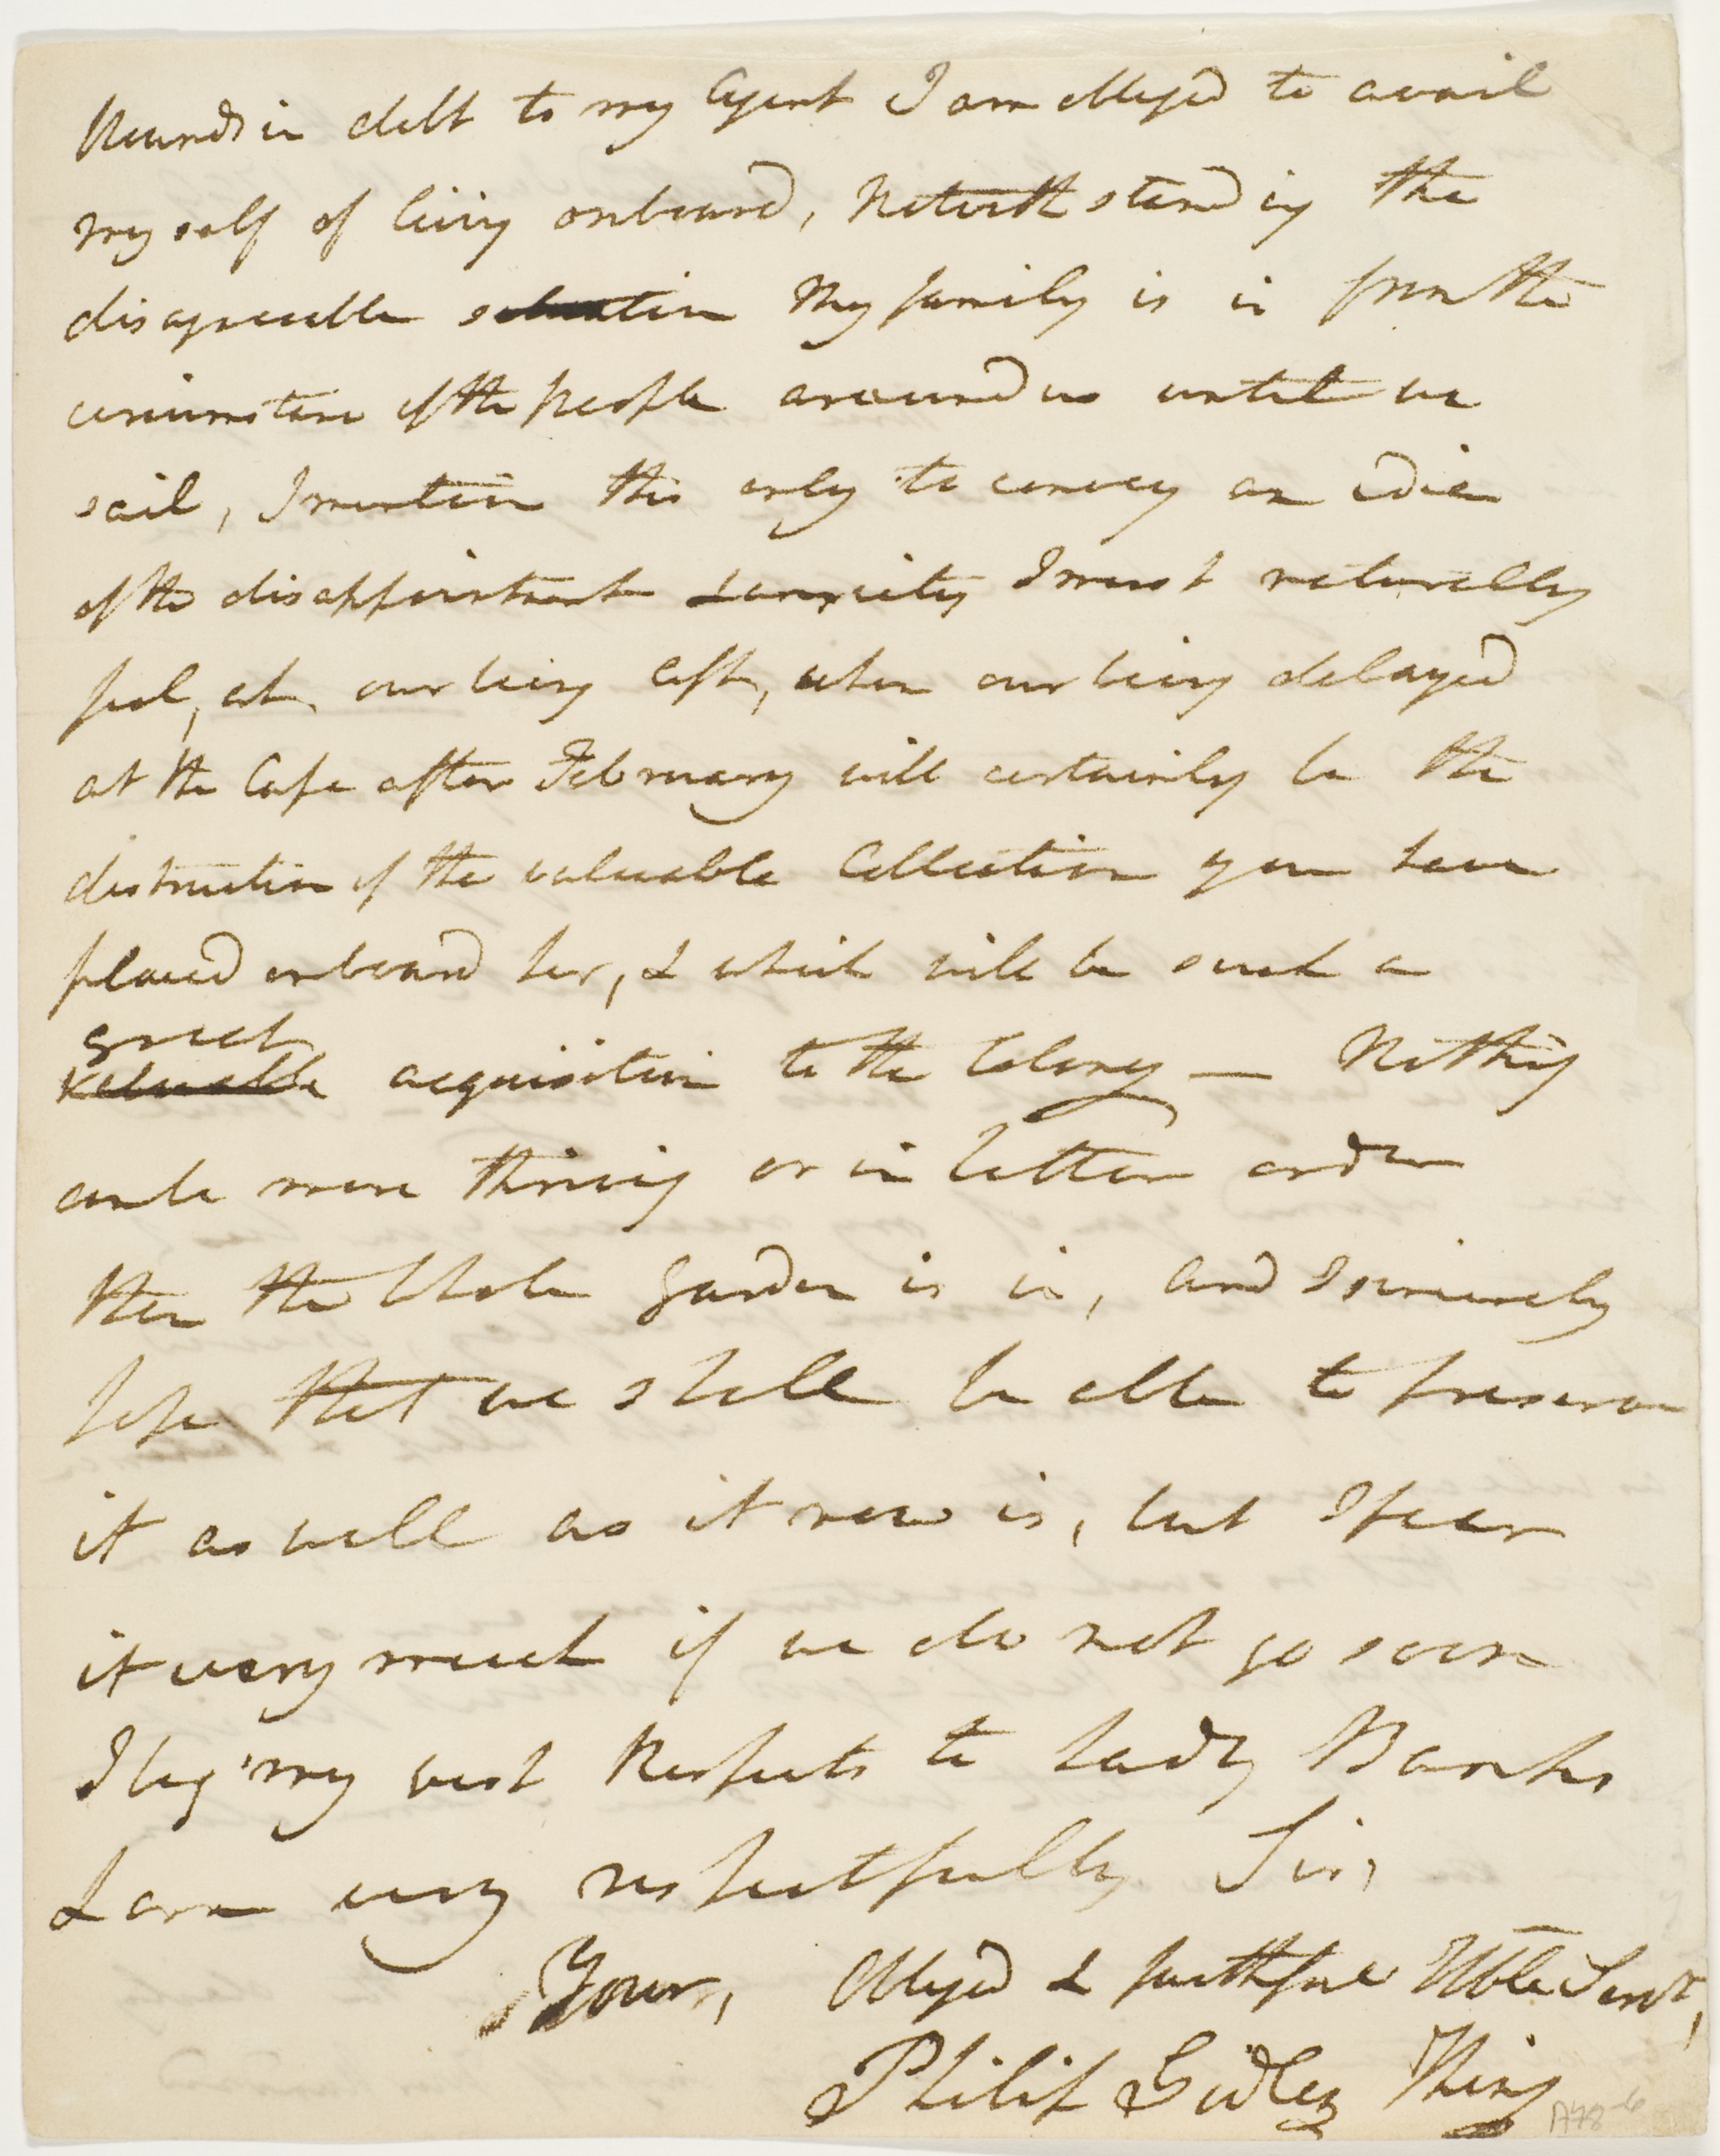 Pounds in debt to my Agent I am obliged to avail
myself of living onboard, Notwithstanding the
disagreeable situation My family is in from the
circumstance of the people around us until we
sail, I mention this only to convey an idiea
of the disappointment & anxiety I must naturally
feel, at our being left, when our being delayed
at the Cape after February will certainly be the
distruction of the valuable Collection you have
placed onboard her, & which will be such a
great
valuable acquisition to the Colony — Nothing
can be more thriving or in better order
than the whole Garden is in, and I sincerely
hope that we shall be able to preserve
it as well as it now is, but I fear
it very much if we do not go soon
I beg my best Respects to Lady Banks
& am very respectfully Sir,
Your, Obliged & faithful Hble Servt,
Philip Gidley King
A78-6